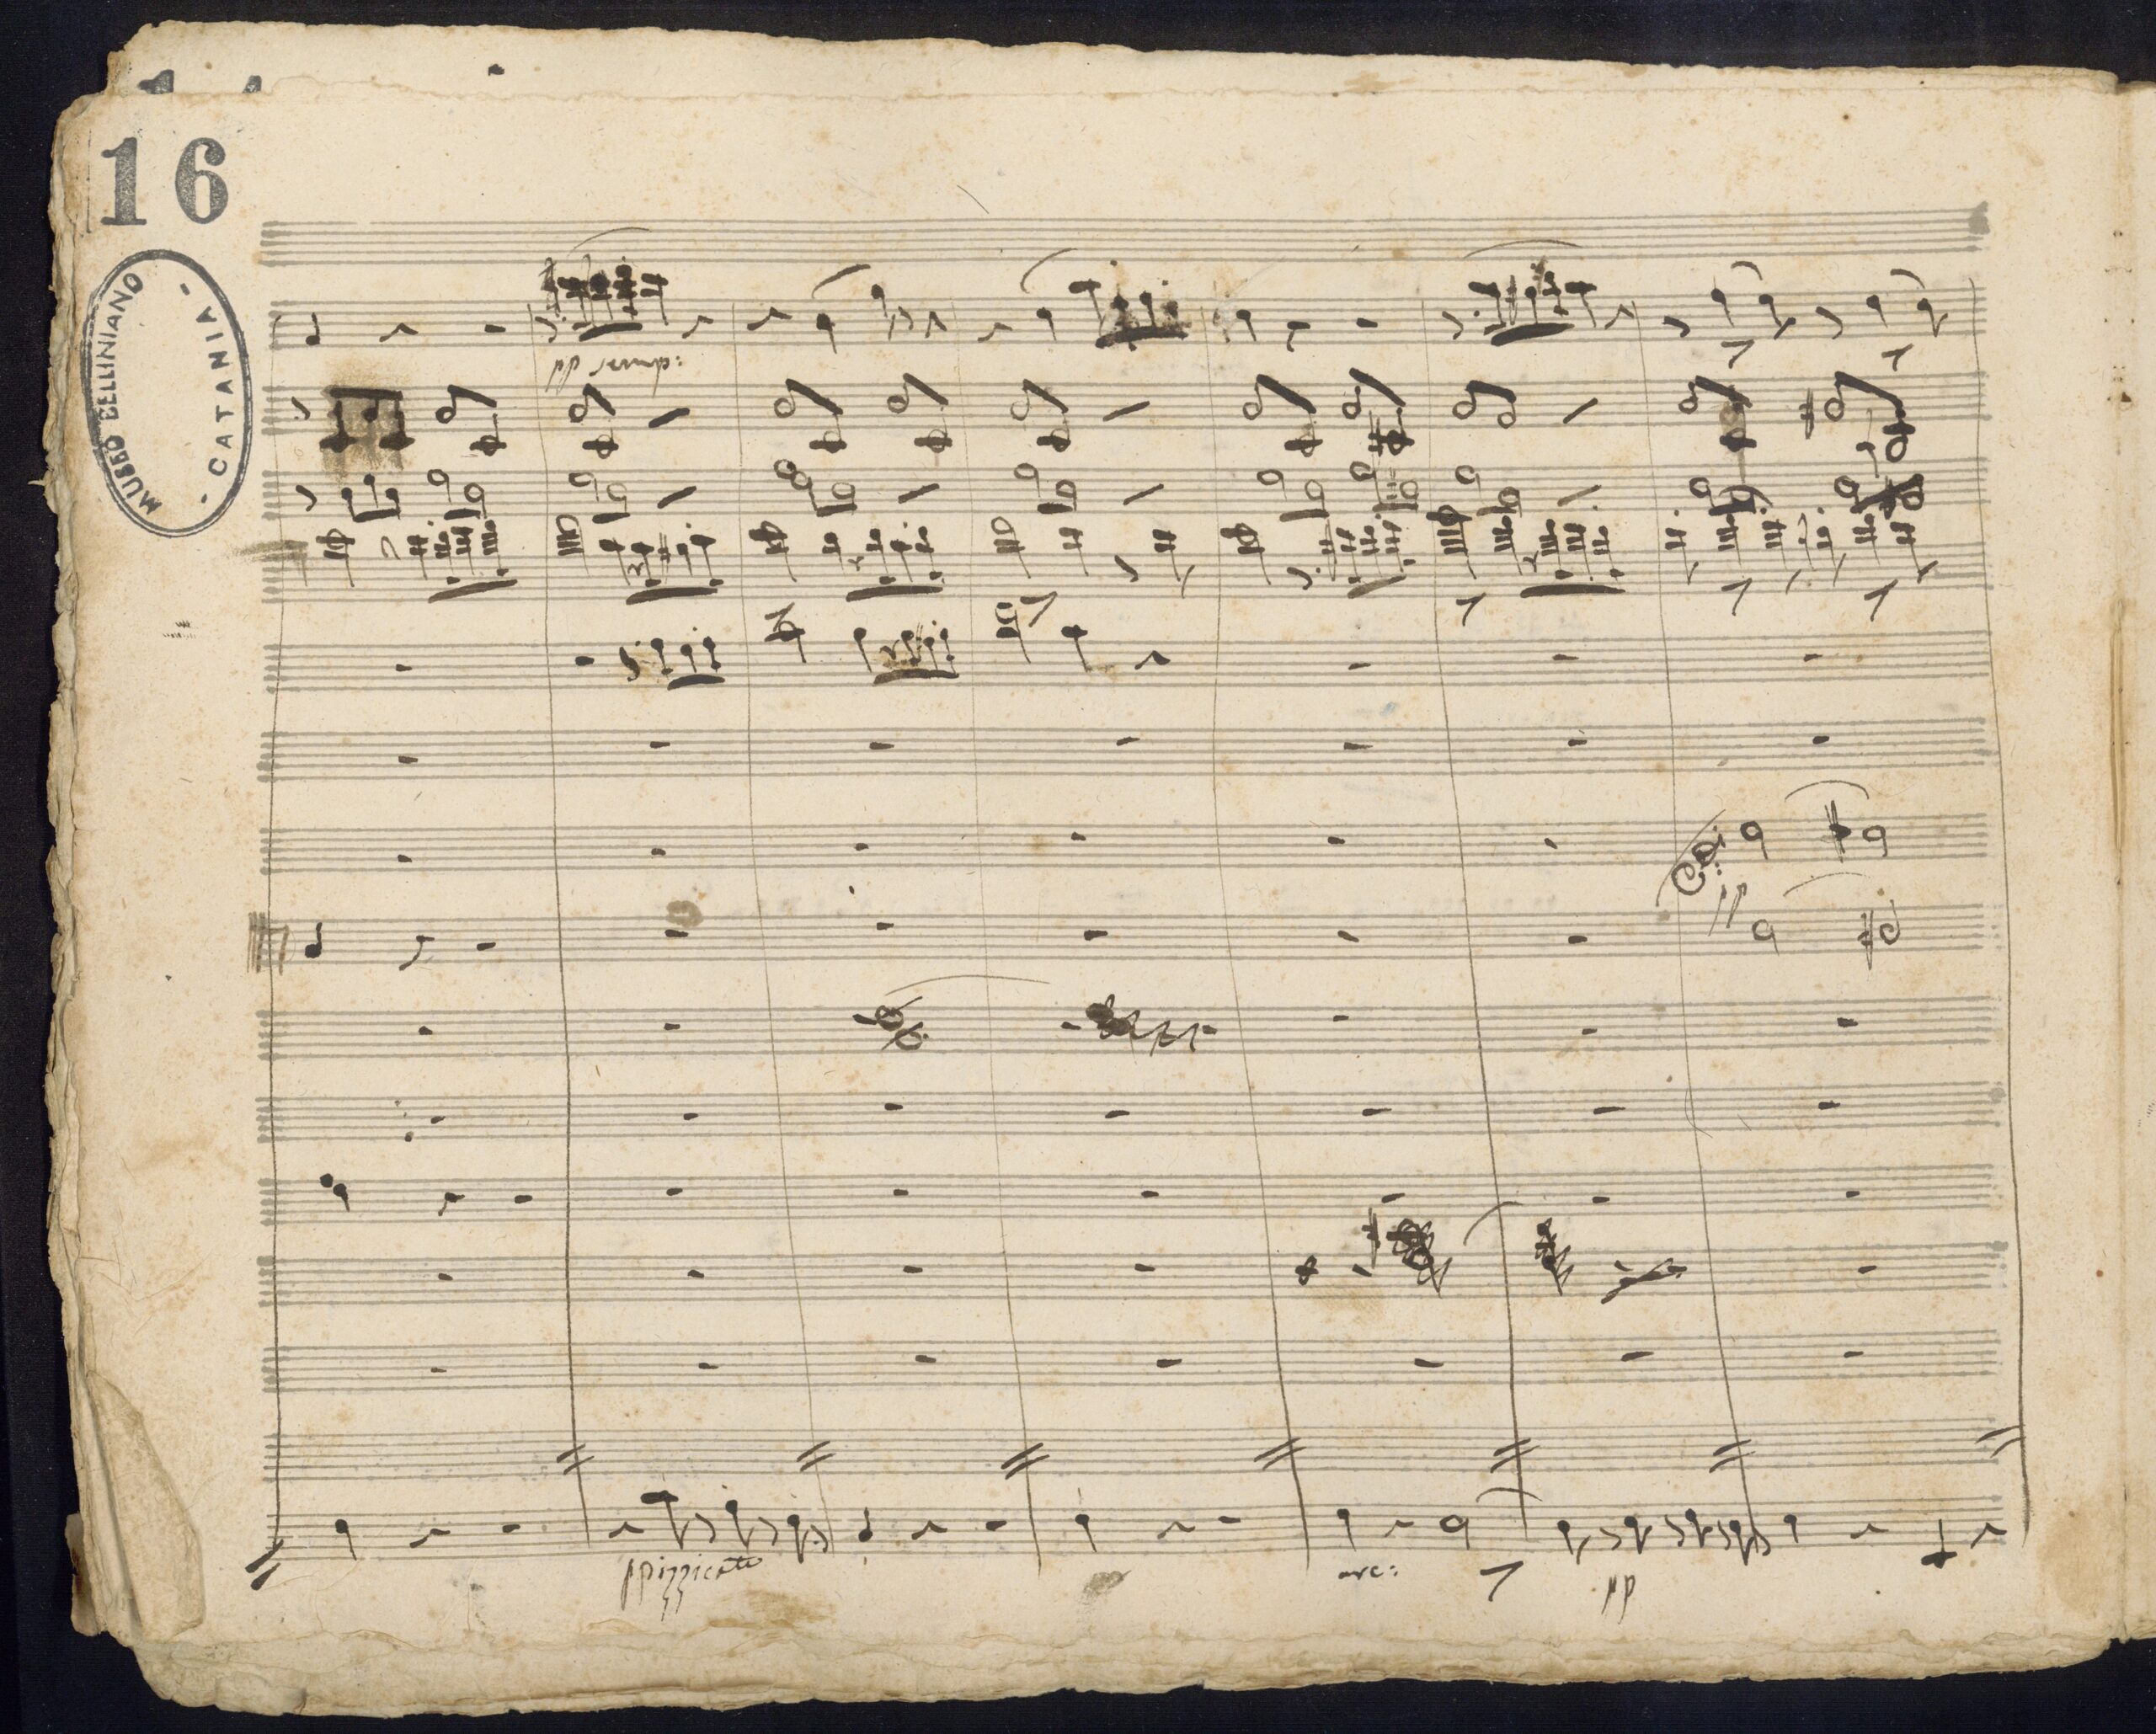 16
MUSEO BELLINIANO
- CATANIA -
pp
pp
ppizzicato
arc:
pp